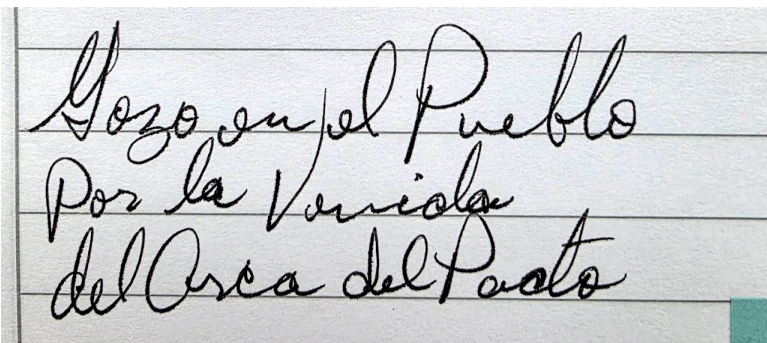 Gozo en el Pueblo
Por la Venida
del Arca del Pacto